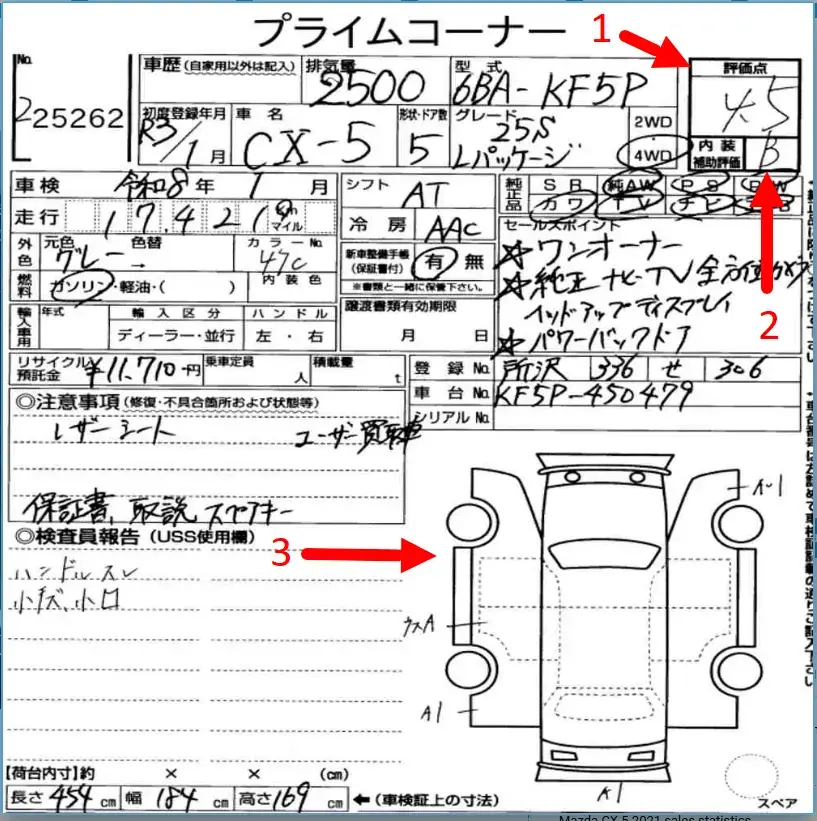 プライムコーナー
1
No.
225262
車歴 (自家用以外は記入)
排気量
2500
型式
6BA-KF5P
評価点
4.5
初度登録年月
R3/1月
車名
CX-5
形状・ドア数
5
グレード
25S
Lパッケージ
2WD
4WD
内装
補助評価
B
車検
令和8年 1月
シフト
AT
純正品
SR
純AW
PS
PW
カワ
TV
ナビ
走行
17,421
km
マイル
冷房
AAC
セールスポイント
☆ワンオーナー
☆純正ナビ・TV 全方位カメラ
ヘッドアップディスプレイ
☆パワーバックドア
外色
元色
グレー
色替
→
カラーNo.
47C
新車整備手帳
(保証書付)
有 無
※書類と一緒に保管下さい。
2
燃料
ガソリン・軽油・( )
内装色
輸入車用
年式
輸入区分
ディーラー・並行
ハンドル
左・右
譲渡書類有効期限
月 日
リサイクル
預託金
¥11,710-円
乗車定員
人
積載量
t
登録No.
所沢 336 せ 306
車台No.
KF5P-450479
シリアルNo.
◎注意事項 (修復・不具合個所および状態等)
レザーシート
ユーザー買取車
保証書、取説 スペアキー
◎検査員報告 (USS使用欄)
3
ハンドルスレ
小キズ、小凹
ウスA
A1
K1
【荷台内寸】約 × × (cm)
長さ 454 cm 幅 184 cm 高さ 169 cm ←(車検証上の寸法)
スペア
Mazda CX 5 2021 sales statistics